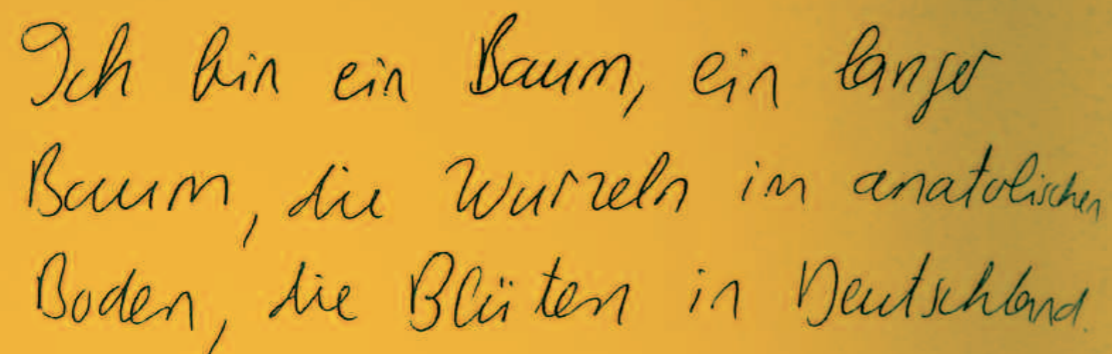 Ich bin ein Baum, ein langer
Baum, die Wurzeln im anatolischen
Boden, die Blüten in Deutschland.